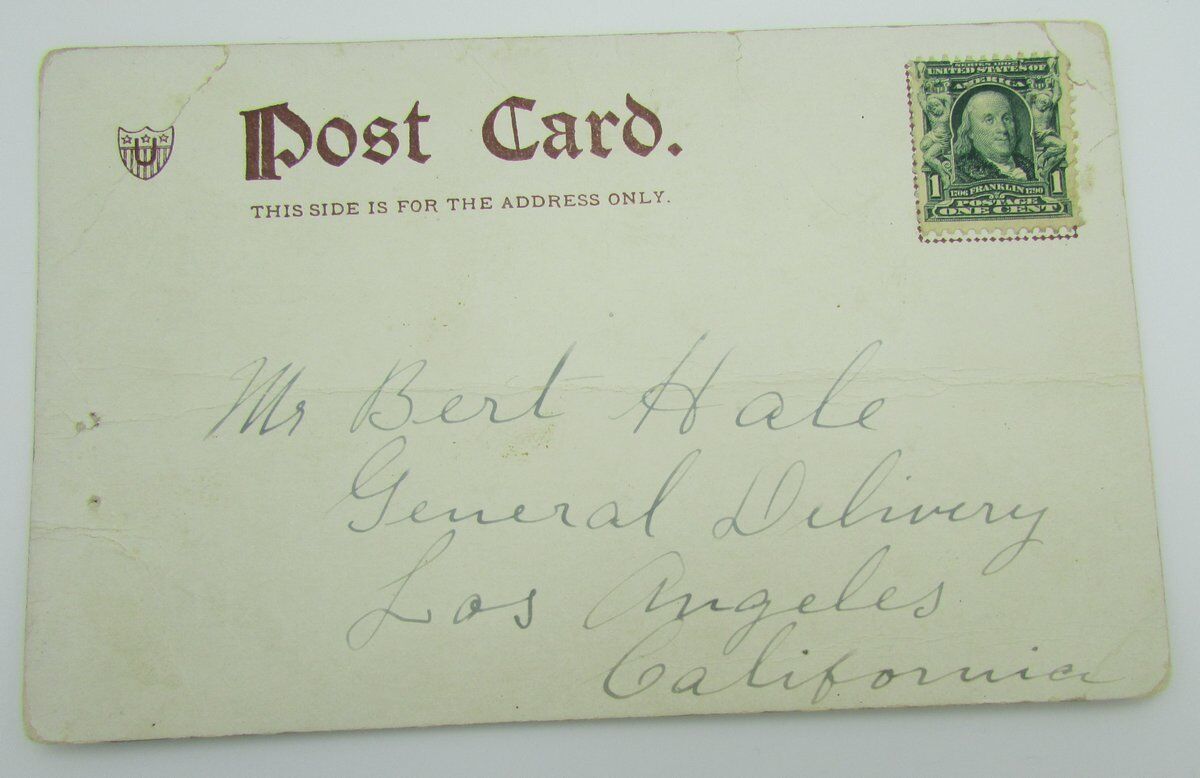 U
Post Card.
THIS SIDE IS FOR THE ADDRESS ONLY.
SERIES 1902
UNITED STATES OF
AMERICA
1 1706 FRANKLIN 1790 1
POSTAGE
ONE CENT
Mr Bert Hale
General Delivery
Los Angeles
California